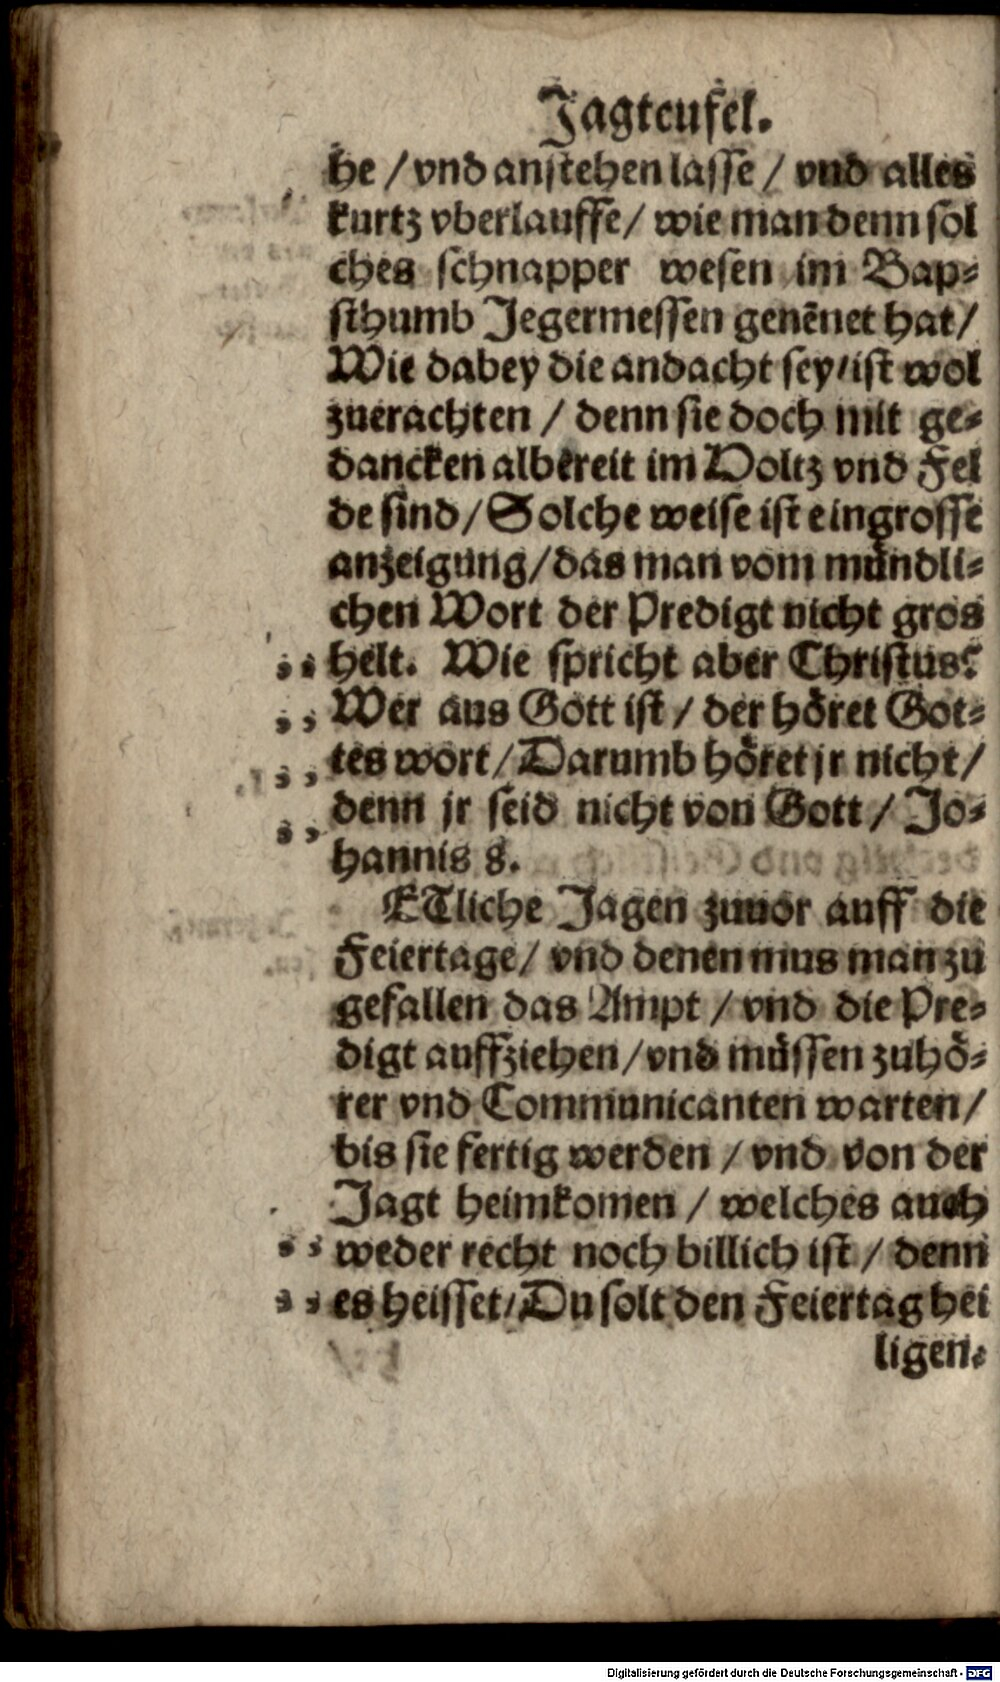 Jagteufel.
he / vnd anstehen lasse / vnd alles
kurtz vberlauffe / wie man denn sol
ches schnapper wesen im Bap⸗
sthumb Jegermessen genẽnet hat /
Wie dabey die andacht sey / ist wol
zuerachten / denn sie doch mit ge⸗
dancken albereit im Holtz vnd Fel
de sind / Solche weise ist ein grosse
anzeigung / das man vom mündli⸗
chen Wort der Predigt nicht gros
helt. Wie spricht aber Christus?
Wer aus Gott ist / der höret Got⸗
tes wort / Darumb höret jr nicht /
denn jr seid nicht von Gott / Jo⸗
hannis 8.
ETliche Jagen zuuor auff die
Feiertage / vnd denen mus man zu
gefallen das Ampt / vnd die Pre⸗
digt auffziehen / vnd müssen zuhö⸗
rer vnd Communicanten warten /
bis sie fertig werden / vnd von der
Jagt heimkomen / welches auch
weder recht noch billich ist / denn
es heisset / Du solt den Feiertag hei
ligen.
Digitalisierung gefördert durch die Deutsche Forschungsgemeinschaft - DFG